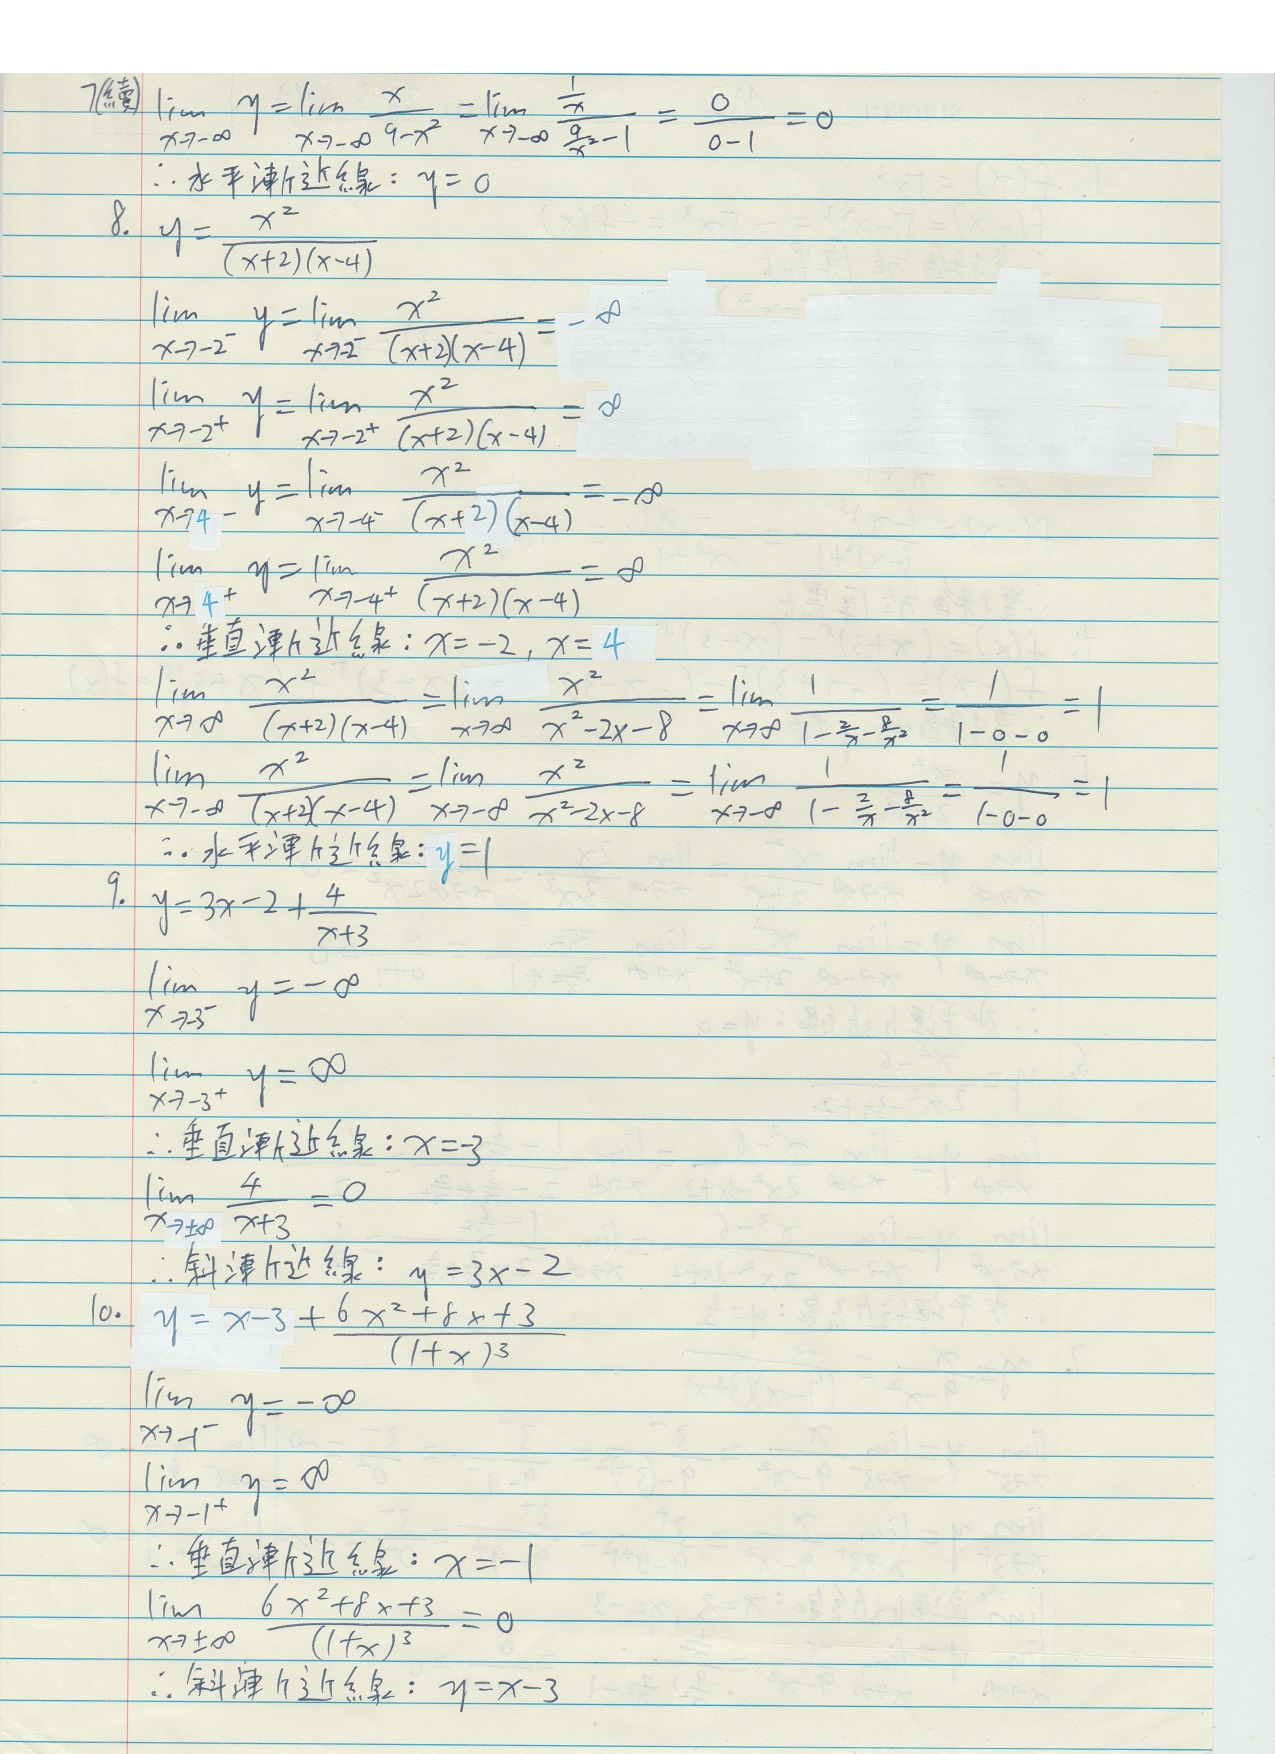 7(續) lim x→-∞ y = lim x→-∞ x/(9-x²) = lim x→-∞ (1/x)/(9/x²-1) = 0/(0-1) = 0
∴水平漸近線: y=0
8. y = x²/((x+2)(x-4))
lim x→-2⁻ y = lim x→-2⁻ x²/((x+2)(x-4)) = -∞
lim x→-2⁺ y = lim x→-2⁺ x²/((x+2)(x-4)) = ∞
lim x→4⁻ y = lim x→-4⁻ x²/((x+2)(x-4)) = -∞
lim x→4⁺ y = lim x→-4⁺ x²/((x+2)(x-4)) = ∞
∴垂直漸近線: x=-2, x=4
lim x→∞ x²/((x+2)(x-4)) = lim x→∞ x²/(x²-2x-8) = lim x→∞ 1/(1-2/x-8/x²) = 1/(1-0-0) = 1
lim x→-∞ x²/((x+2)(x-4)) = lim x→-∞ x²/(x²-2x-8) = lim x→-∞ 1/(1-2/x-8/x²) = 1/(1-0-0) = 1
∴水平漸近線: y=1
9. y=3x-2+4/(x+3)
lim x→-3⁻ y = -∞
lim x→-3⁺ y = ∞
∴垂直漸近線: x=-3
lim x→±∞ 4/(x+3) = 0
∴斜漸近線: y=3x-2
10. y = x-3+(6x²+8x+3)/(1+x)³
lim x→-1⁻ y = -∞
lim x→-1⁺ y = ∞
∴垂直漸近線: x=-1
lim x→±∞ (6x²+8x+3)/(1+x)³ = 0
∴斜漸近線: y=x-3